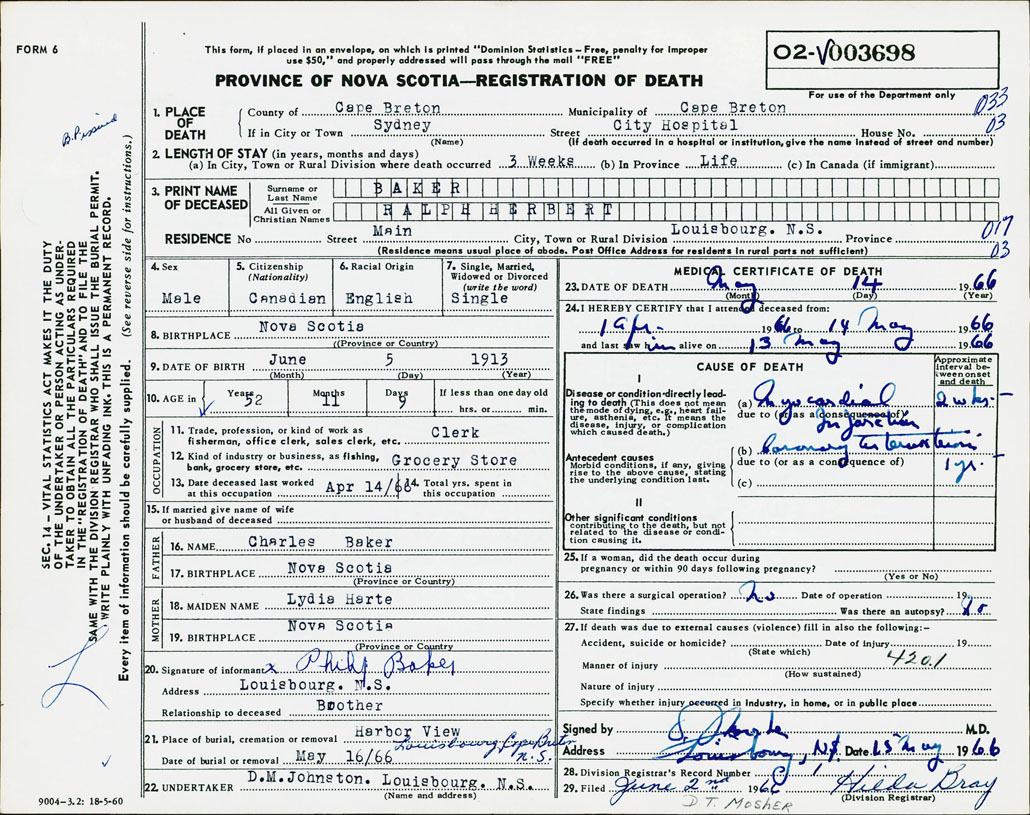 FORM 6
This form, if placed in an envelope, on which is printed "Dominion Statistics – Free, penalty for improper
use $50," and properly addressed will pass through the mail "FREE"
02-V003698
For use of the Department only
PROVINCE OF NOVA SCOTIA—REGISTRATION OF DEATH
SEC. 14 – VITAL STATISTICS ACT MAKES IT THE DUTY
OF THE UNDERTAKER OR PERSON ACTING AS UNDER-
TAKER TO OBTAIN ALL THE PARTICULARS REQUIRED
IN THE "REGISTRATION OF DEATH" AND TO FILE THE
SAME WITH THE DIVISION REGISTRAR WHO SHALL ISSUE THE BURIAL PERMIT.
WRITE PLAINLY WITH UNFADING INK. THIS IS A PERMANENT RECORD.
Every item of information should be carefully supplied. (See reverse side for instructions.)
1. PLACE OF DEATH
County of Cape Breton Municipality of Cape Breton 033
If in City or Town Sydney Street City Hospital House No. 03
(Name) (If death occurred in a hospital or institution, give the name instead of street and number)
2. LENGTH OF STAY (in years, months and days)
(a) In City, Town or Rural Division where death occurred 3 Weeks (b) In Province Life (c) In Canada (if immigrant)
3. PRINT NAME OF DECEASED
Surname or Last Name BAKER
All Given or Christian Names RALPH HERBERT
RESIDENCE No Street Main City, Town or Rural Division Louisbourg. N.S. Province 017
(Residence means usual place of abode. Post Office Address for residents in rural parts not sufficient) 03
4. Sex Male
5. Citizenship (Nationality) Canadian
6. Racial Origin English
7. Single, Married, Widowed or Divorced (write the word) Single
8. BIRTHPLACE Nova Scotia
(Province or Country)
9. DATE OF BIRTH June 5 1913
(Month) (Day) (Year)
10. AGE in Years 52 Months 11 Days 9 If less than one day old
hrs. or min.
OCCUPATION
11. Trade, profession, or kind of work as Clerk
fisherman, office clerk, sales clerk, etc.
12. Kind of industry or business, as fishing, Grocery Store
bank, grocery store, etc.
13. Date deceased last worked at this occupation Apr 14/66 14. Total yrs. spent in this occupation
15. If married give name of wife
or husband of deceased
FATHER
16. NAME Charles Baker
17. BIRTHPLACE Nova Scotia
(Province or Country)
MOTHER
18. MAIDEN NAME Lydia Harte
19. BIRTHPLACE Nova Scotia
(Province or Country)
20. Signature of informant x Philip Baker
Address Louisbourg. N.S.
Relationship to deceased Brother
21. Place of burial, cremation or removal Harbor View
Louisbourg, Cape Breton
N.S.
Date of burial or removal May 16/66
22. UNDERTAKER D.M. Johnston. Louisbourg. N.S.
(Name and address)
9004–3.2: 18-5-60
MEDICAL CERTIFICATE OF DEATH
23. DATE OF DEATH May 14 1966
(Month) (Day) (Year)
24. I HEREBY CERTIFY that I attended deceased from:
1 Apr. 1966 to 14 May 1966
and last saw him alive on 13 May 1966
CAUSE OF DEATH
Approximate interval between onset and death
I
Disease or condition directly leading to death (This does not mean the mode of dying, e.g., heart failure, asthenia, etc. It means the disease, injury, or complication which caused death.)
(a) Myocardial 2 wks.
due to (or as a consequence of) Infarction
(b) Coronary
Antecedent causes
Morbid conditions, if any, giving rise to the above cause, stating the underlying condition last.
due to (or as a consequence of) 1 yr.
(c)
II
Other significant conditions
contributing to the death, but not related to the disease or condition causing it.
25. If a woman, did the death occur during
pregnancy or within 90 days following pregnancy?
(Yes or No)
26. Was there a surgical operation? No Date of operation 19
State findings Was there an autopsy? No
27. If death was due to external causes (violence) fill in also the following:–
Accident, suicide or homicide? Date of injury 19
(State which) 420.1
Manner of injury
(How sustained)
Nature of injury
Specify whether injury occurred in industry, in home, or in public place
Signed by M.D.
Address Louisbourg, N.S. Date 15 May 1966
28. Division Registrar's Record Number
29. Filed June 2nd 1966 Hilda Bray
D.T. MOSHER (Division Registrar)